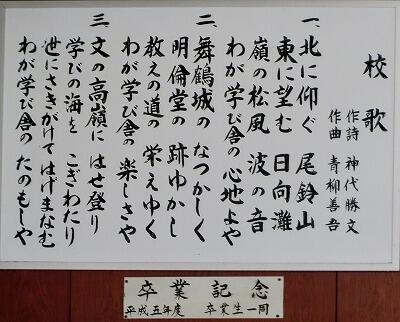 校歌
作詩 神代勝文
作曲 青柳善吾
一、北に仰ぐ 尾鈴山
東に望む 日向灘
嶺の松風 波の音
わが学び舎の心地よや
二、舞鶴城の なつかしく
明倫堂の 跡ゆかし
教えの道の 栄えゆく
わが学び舎の 楽しさや
三、文の高嶺に はせ登り
学びの海を こぎわたり
世にさきがけて はげまなむ
わが学び舎の たのもしや
卒業記念
平成五年度 卒業生一同